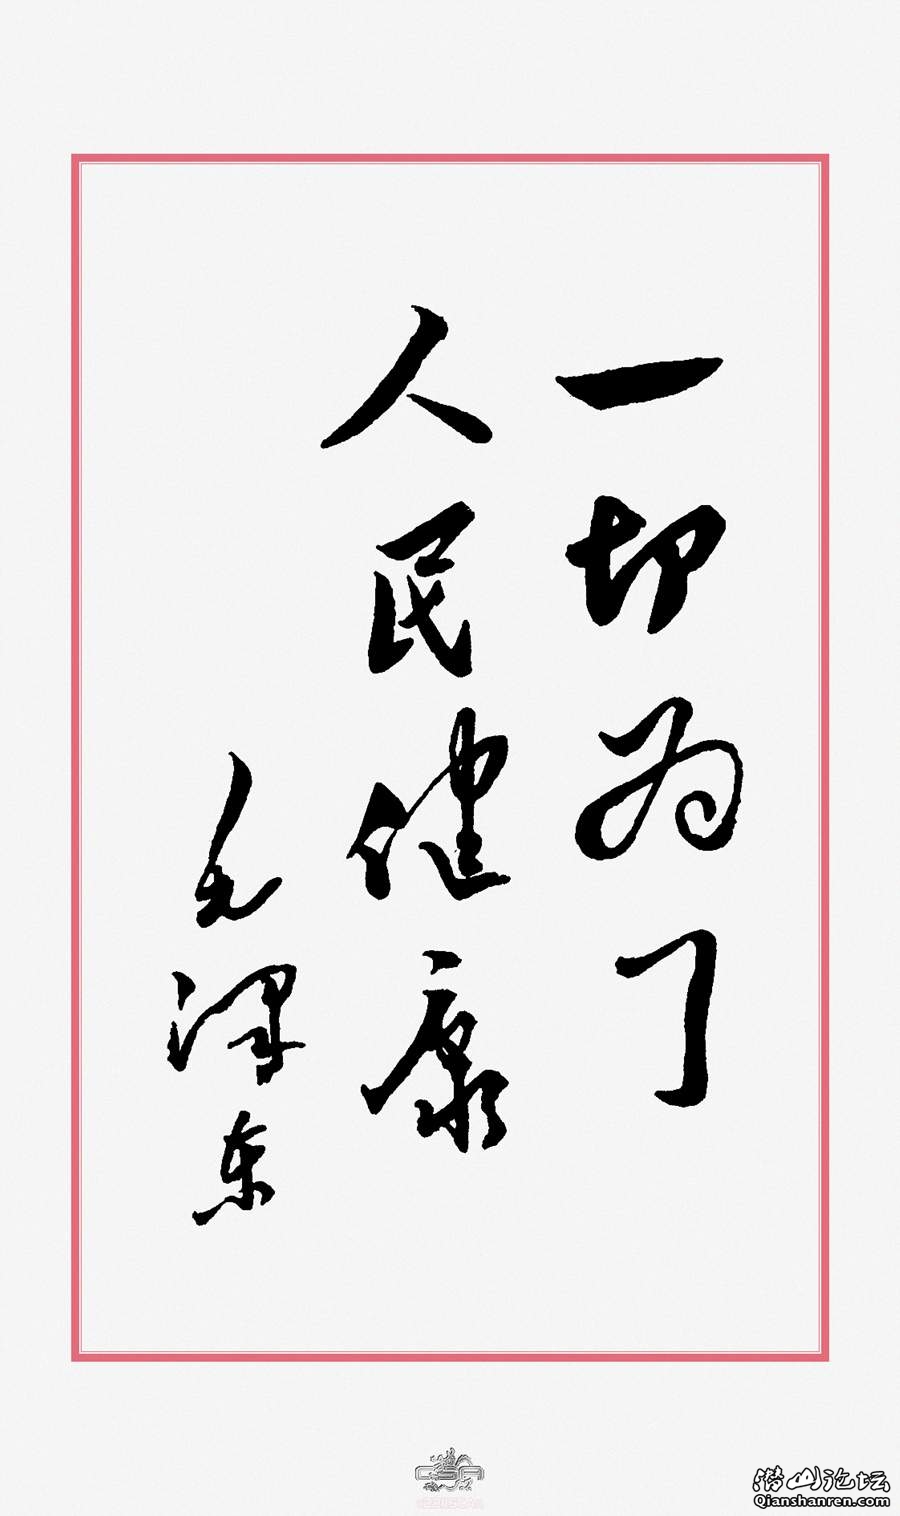 一切为了
人民健康
毛泽东
CSA
潜山论坛
Qianshanren.com